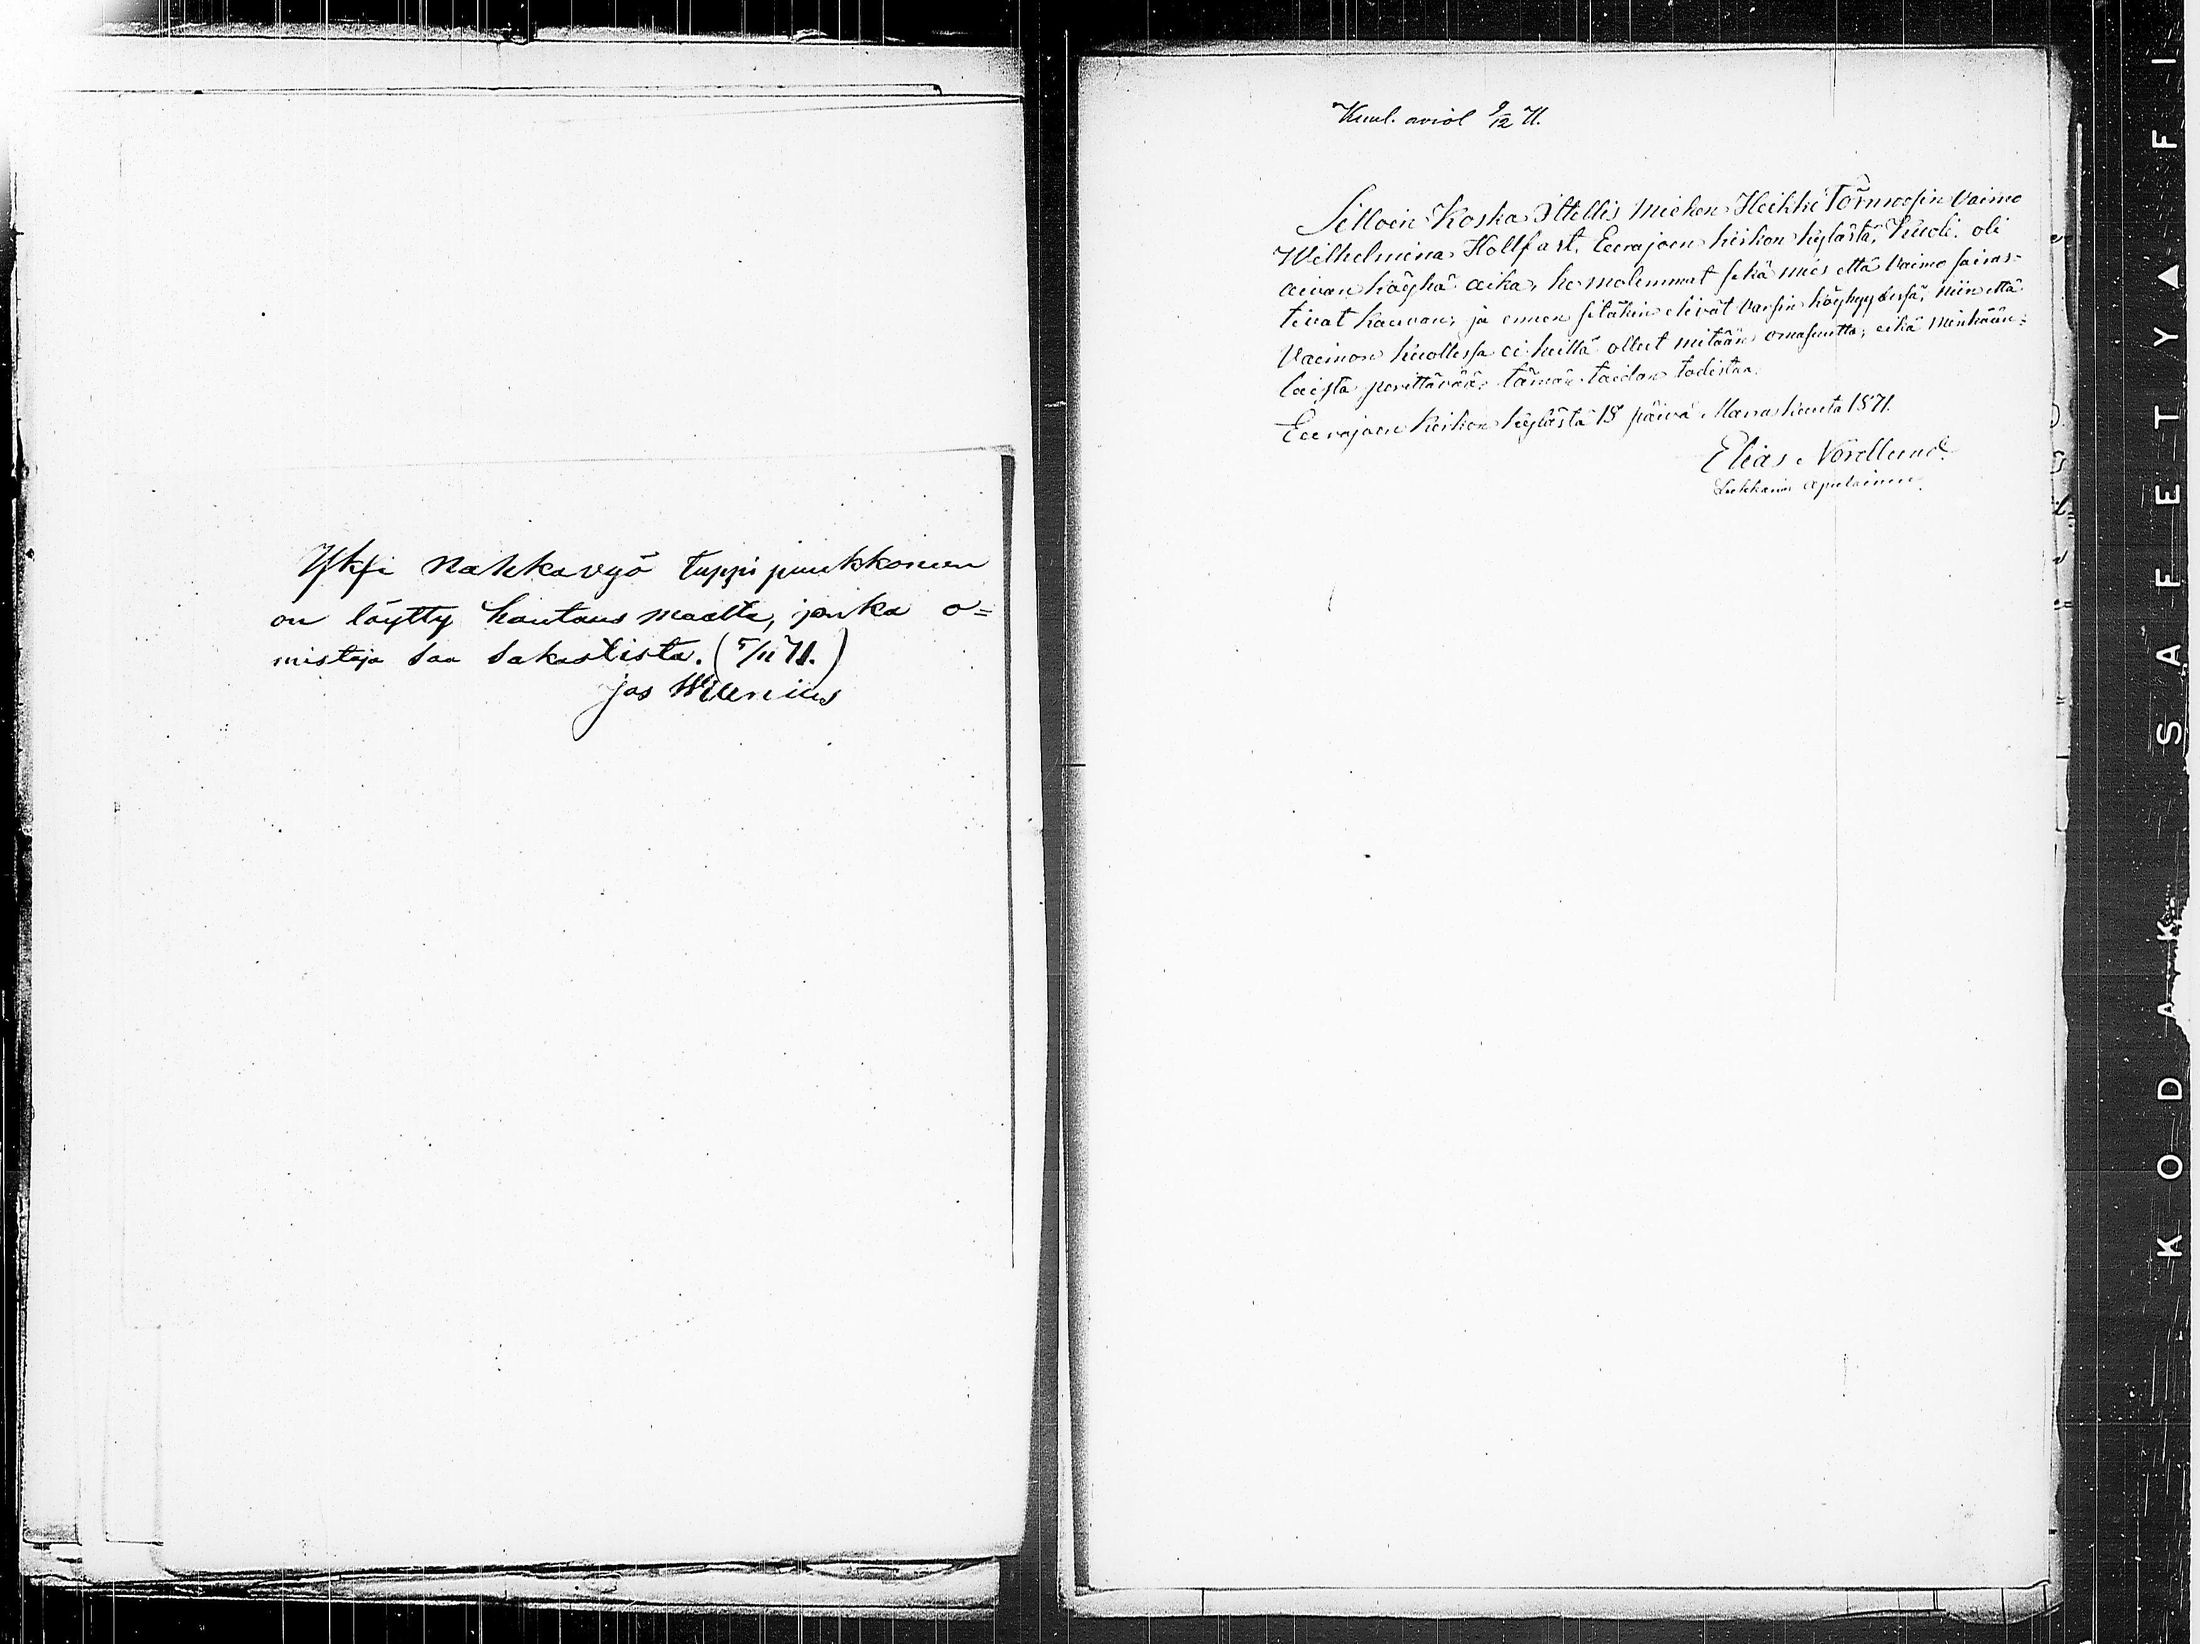 Yksi Nahkavyö tuppi puukkoneen
on löytty hautaus maalta, jonka o=
mistaja saa sakastista. (5/11 71.)
Jos Wilenius
Kuul. aviol 9/12 71.
Silloin Koska Ittellis miehen Heikki Törnroosin Vaimo
Wilhelmina Hollfast, Eurajoen kirkon kylästä, kuoli. oli
aivan köyhä aika, he molemmat sekä mies että Vaimo sairas-
tivat kauvan, ja ennen sitäkin elivät varsin köyhyydessä, niin että
Vaimon kuollessa ei heillä ollut mitään omasuutta, eikä minkään=
laista perittävää. tämän taidan todistaa.
Eurajoen kirkon kylästä 18 päivä Marraskuuta 1871.
Elias Nordlund
Lukkarin apulainen
KODAK SAFETY FI